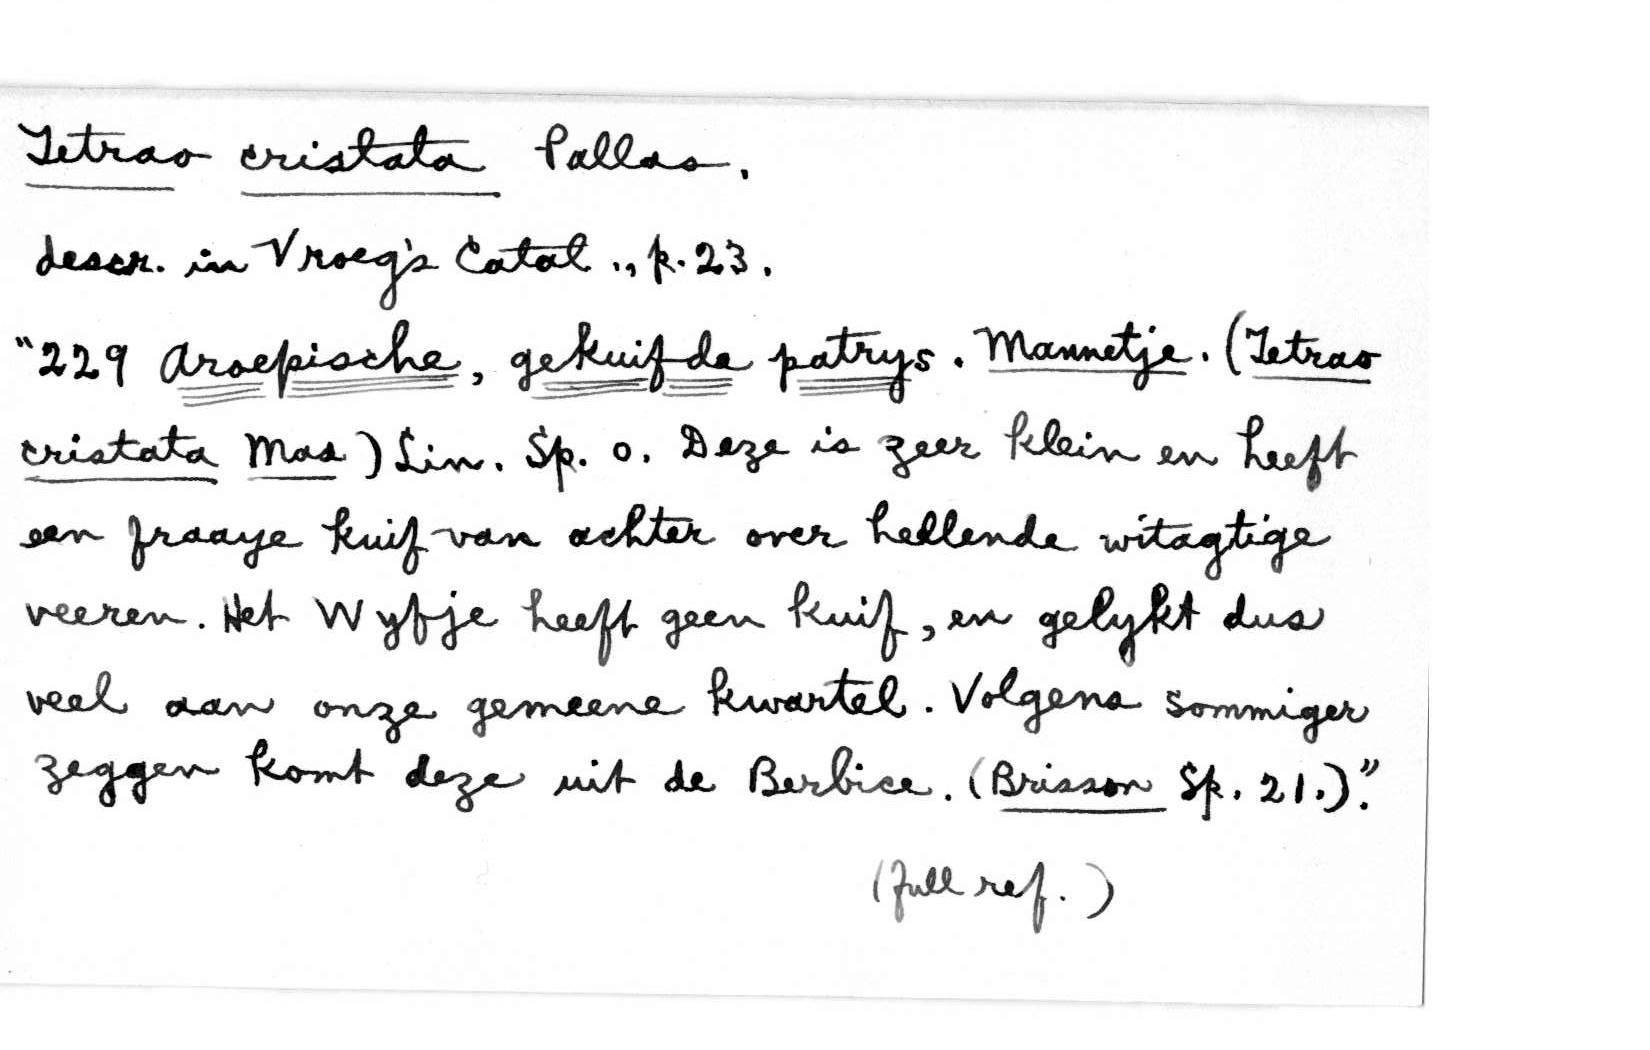 Tetrao cristata Pallas.
descr. in Vroeg's Catal., p. 23.
"229 Aroepische, gekuifde patrys. Mannetje. (Tetrao
cristata Mas) Lin. Sp. 0. Deze is zeer klein en heeft
een fraaye kuif van achter over hellende witagtige
veeren. Het Wyfje heeft geen kuif, en gelykt dus
veel aan onze gemeene kwartel. Volgens sommiger
zeggen komt deze uit de Berbice. (Brisson Sp. 21.)".
(full ref.)